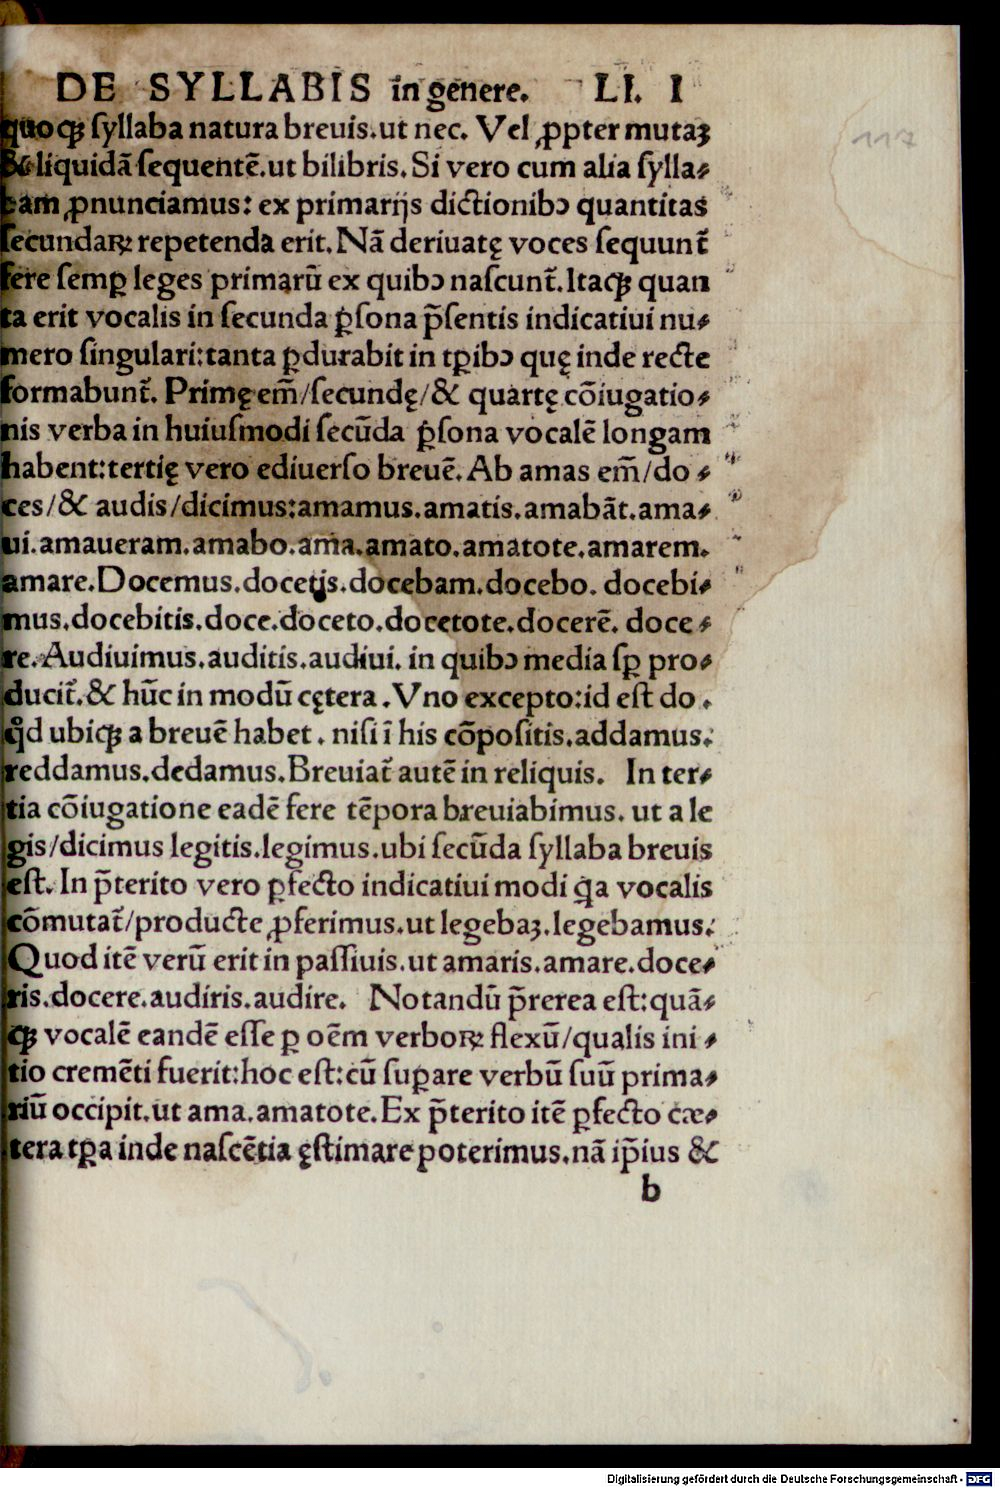 DE SYLLABIS in genere. LI. I
117
quoqꝫ ſyllaba natura breuis.ut nec. Vel ꝓpter mutaꝫ
& liquidā ſequentē.ut bilibris. Si vero cum alia ſylla-
bam ꝓnunciamus: ex primarijs dictionibꝯ quantitas
ſecundaꝝ repetenda erit. Nā deriuatę voces ſequunt̄
fere ſemꝑ leges primarū ex quibꝯ naſcunt̄. Itaqꝫ quan
ta erit vocalis in ſecunda ꝑſona p̄ſentis indicatiui nu-
mero ſingulari: tanta ꝑdurabit in tꝑibꝯ quę inde recte
formabunt̄. Primę em̄/ſecundę/& quartę cōiugatio-
nis verba in huiuſmodi ſecūda ꝑſona vocalē longam
habent: tertię vero ediuerſo breuē. Ab amas em̄/do-
ces/& audis/dicimus: amamus.amatis.amabāt.ama-
ui.amaueram.amabo.ama.amato.amatote.amarem.
amare. Docemus.docetis.docebam.docebo. docebi-
mus.docebitis.doce.doceto.docetote.docerē. doce-
re. Audiuimus.auditis.audiui. in quibꝯ media ſꝑ pro-
ducit̄.& hūc in modū cętera . Vno excepto: id eſt do .
qͥd ubiqꝫ a breuē habet . niſi ī his cōpoſitis.addamus.
reddamus.dedamus. Breuiat̄ autē in reliquis. In ter-
tia cōiugatione eadē fere tēpora breuiabimus. ut a le
gis/dicimus legitis.legimus.ubi ſecūda ſyllaba breuis
eſt. In p̄terito vero ꝑfecto indicatiui modi qͥa vocalis
cōmutat̄/producte ꝓferimus.ut legebaꝫ.legebamus.
Quod itē verū erit in paſſiuis.ut amaris.amare.doce-
ris.docere.audiris.audire. Notandū p̄rerea eſt: quā-
qꝫ vocalē eandē eſſe ꝑ oēm verboꝝ flexū/qualis ini-
tio cremēti fuerit: hoc eſt: cū ſuꝑare verbū ſuū prima-
riū occipit.ut ama.amatote. Ex p̄terito itē ꝑfecto cæ-
tera tꝑa inde naſcētia ęſtimare poterimus.nā ip̄ius &
b
Digitalisierung gefördert durch die Deutsche Forschungsgemeinschaft - DFG